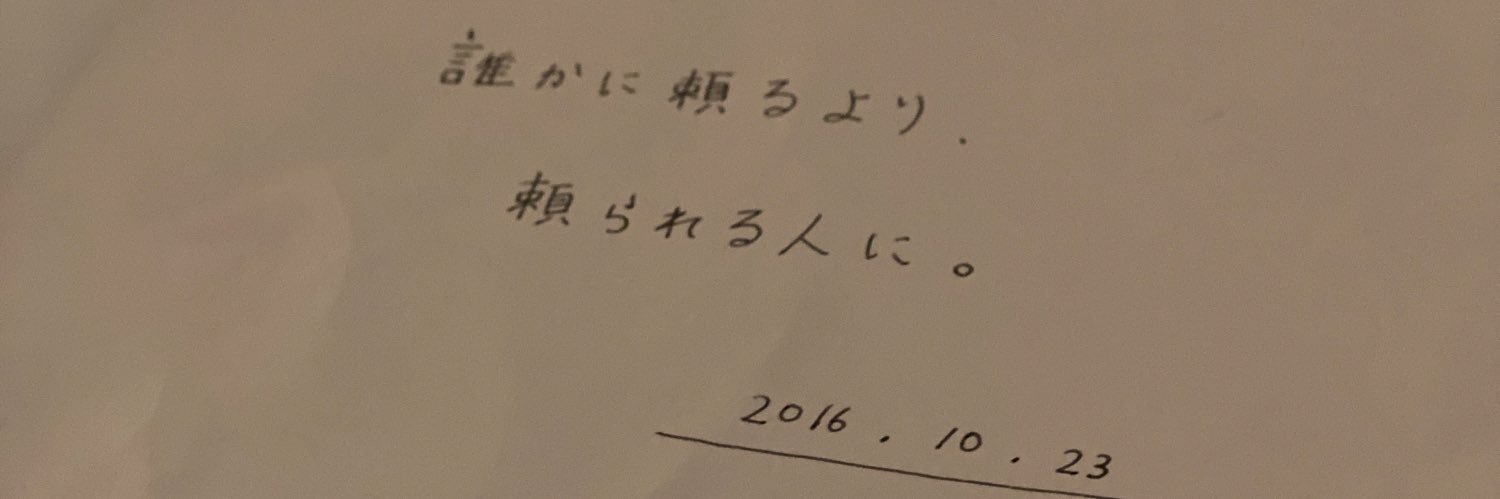 誰かに頼るより.
頼られる人に。
2016.10.23